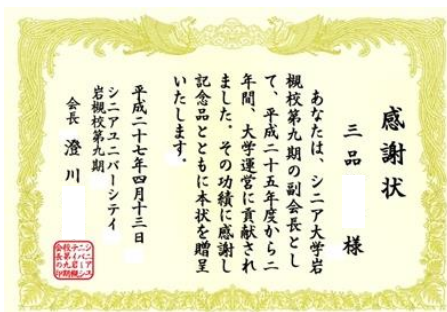 感謝状
三品 様
あなたは、シニア大学岩
槻校第九期の副会長とし
て、平成二十五年度から二
年間、大学運営に貢献され
ました。その功績に感謝し
記念品とともに本状を贈呈
いたします。
平成二十七年四月十三日
シニアユニバーシティ
岩槻校第九期
会長 澄川